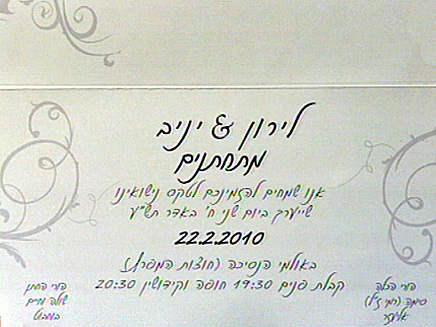 לירון & יניב
מתחתנים
אנו שמחים להזמינכם לטקס נישואינו
שייערך ביום שני ח' באדר תש"ע
22.2.2010
באולמי הנסיכה (חוצות המפרץ)
קבלת פנים 19:30 חופה וקידושין 20:30
הורי הכלה
סימה (רמי ז"ל)
הורי החתן